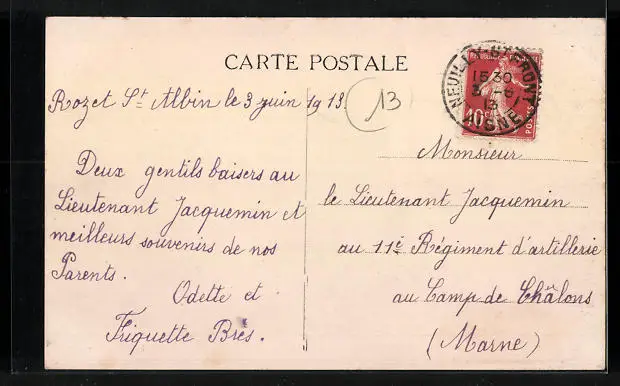 CARTE POSTALE
NEUILLY-ST-FRONT
15 30
3 -6
13
AISNE
10c
POSTES
Rozet St Albin le 3 juin 1913.
(13)
Deux gentils baisers au
Lieutenant Jacquemin et
meilleurs souvenirs de nos
Parents.
Odette et
Friquette Brés.
Monsieur
le Lieutenant Jacquemin
au 11e Régiment d'artillerie
au Camp de Châlons
(Marne)